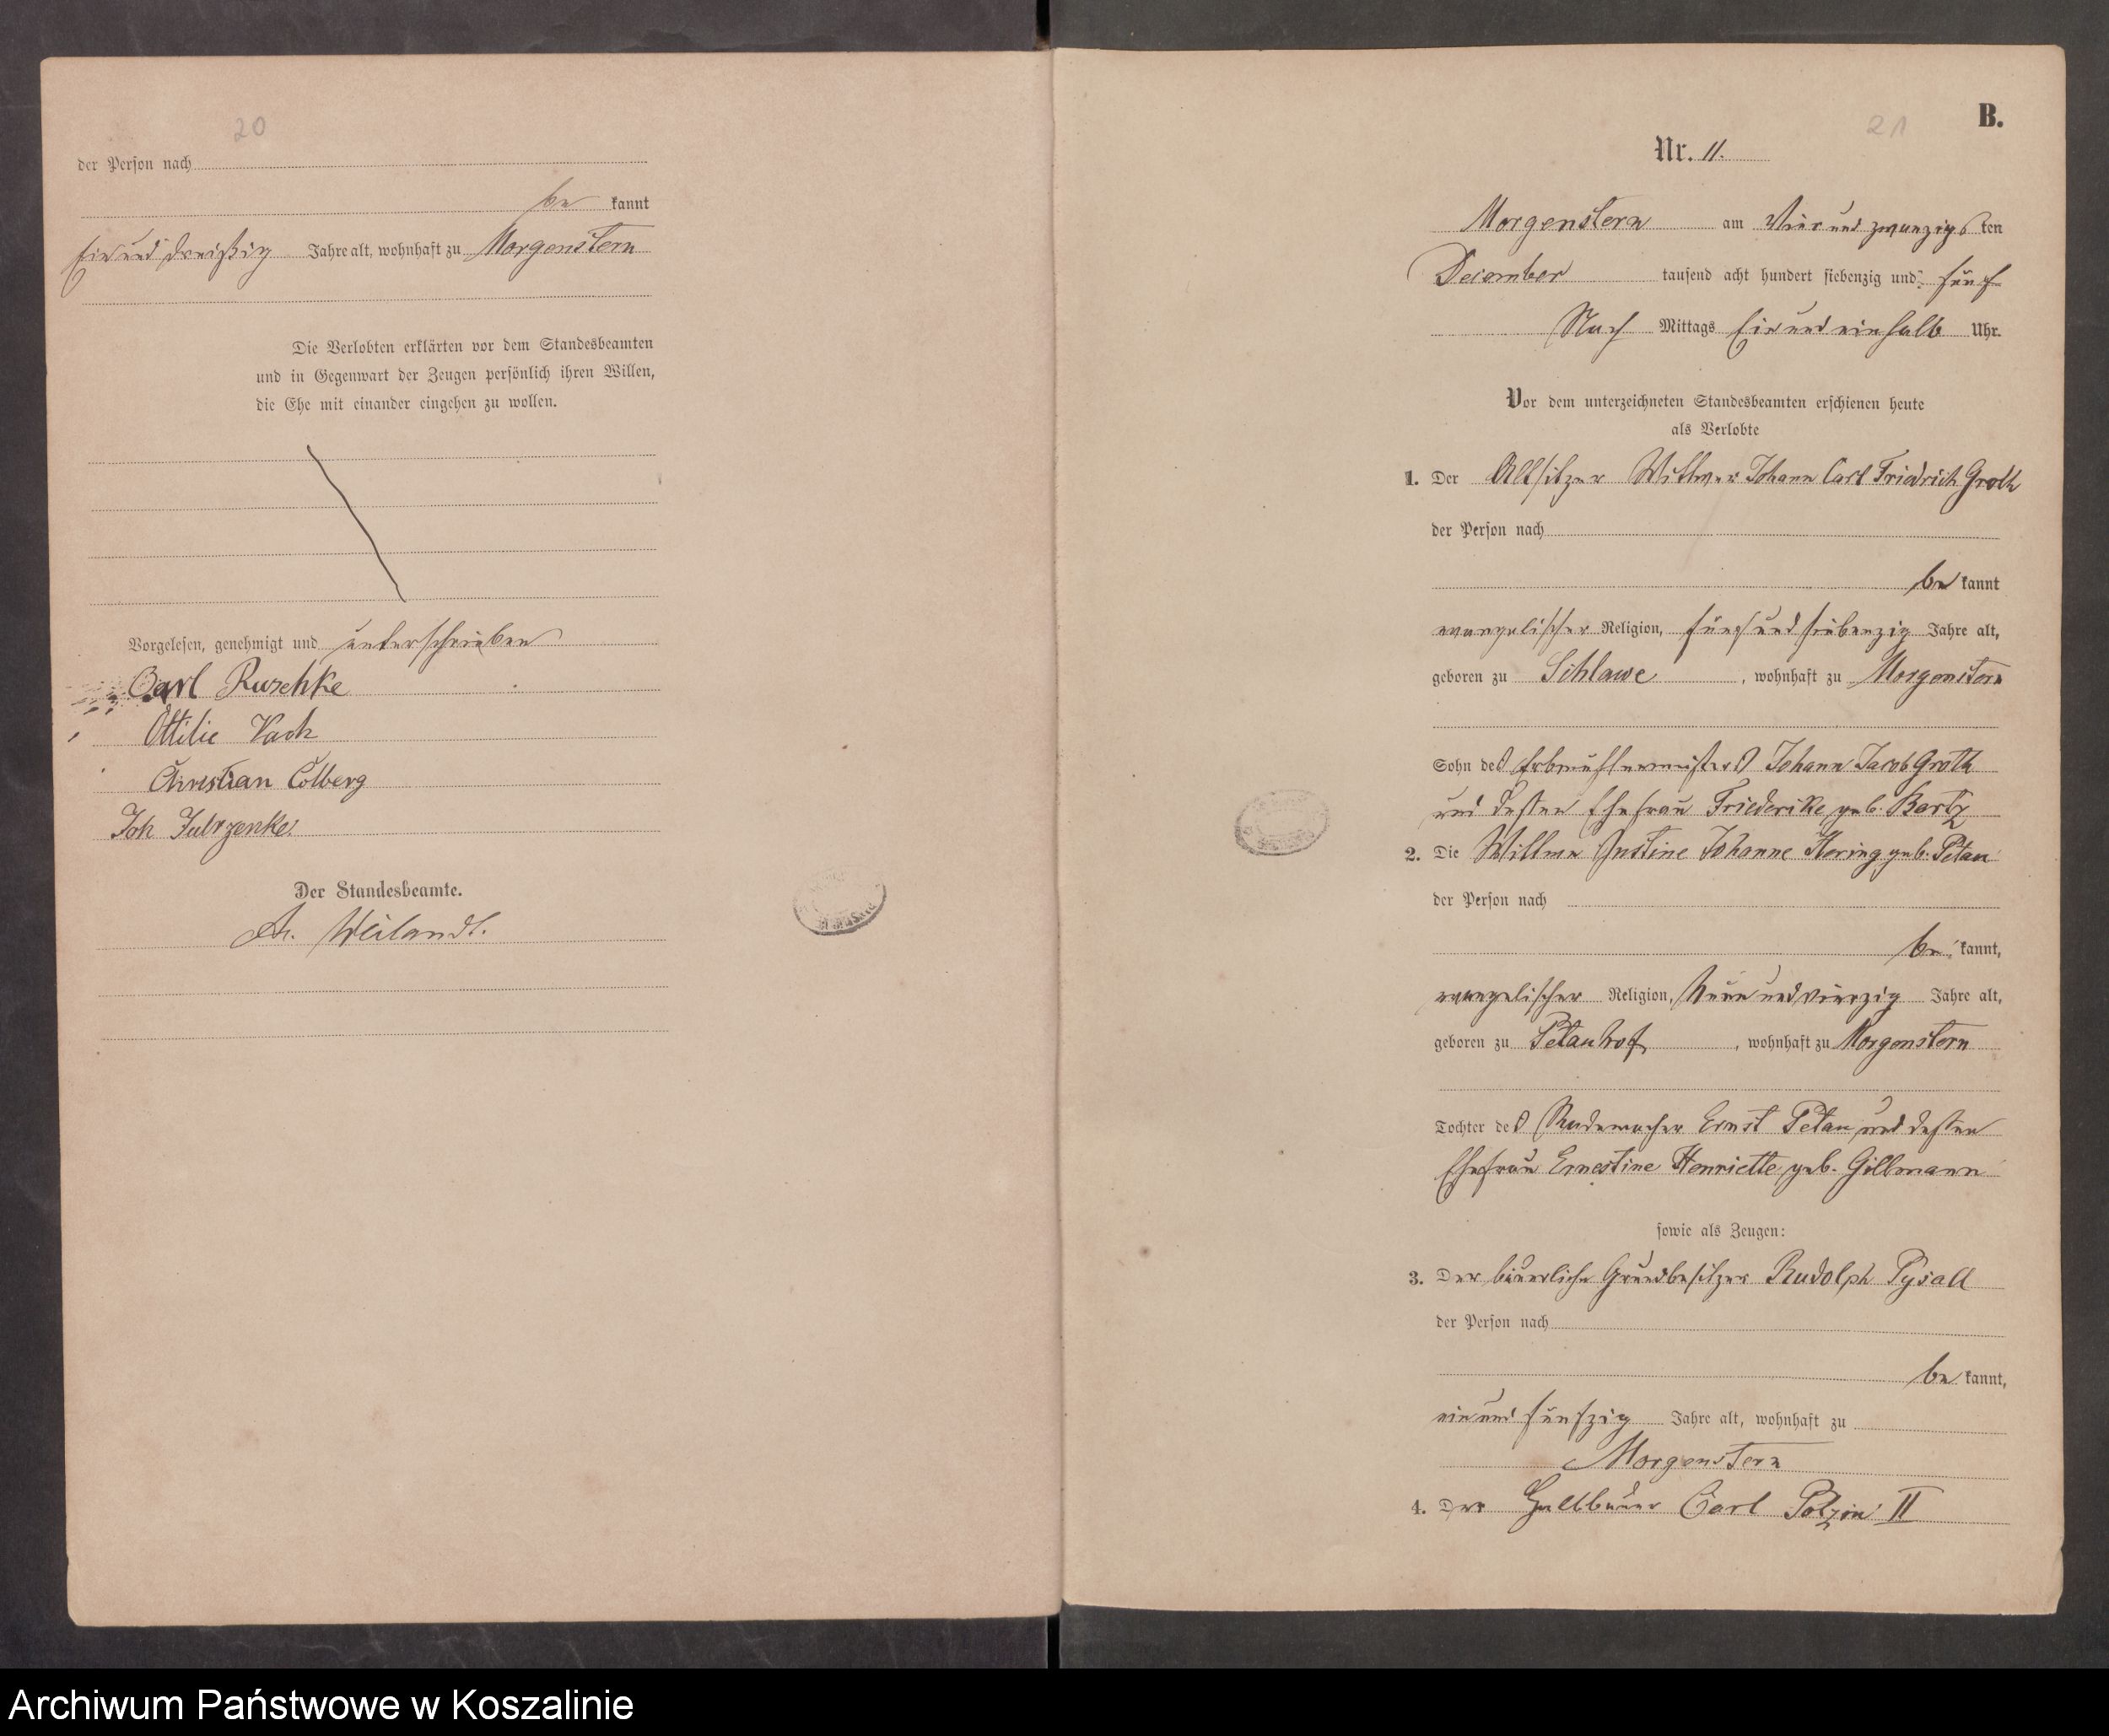 20
der Person nach
be kannt
Ein und dreißig Jahre alt, wohnhaft zu Morgenstern
Die Verlobten erklärten vor dem Standesbeamten
und in Gegenwart der Zeugen persönlich ihren Willen,
die Ehe mit einander eingehen zu wollen.
Vorgelesen, genehmigt und unterschrieben
Carl Ruschke
Ottilie Vach
Christian Colberg
Joh
Der Standesbeamte.
A. Weilandt.
21
B.
Nr. 11.
Morgenstern am Vier und zwanzigs ten
December tausend acht hundert siebenzig und fünf
Nach Mittags Ein und ein halb Uhr.
Vor dem unterzeichneten Standesbeamten erschienen heute
als Verlobte
1. Der Altsitzer Wittwer Johann Carl Friedrich Groth
der Person nach
be kannt
evangelischer Religion, fünf und siebenzig Jahre alt,
geboren zu Schlawe, wohnhaft zu Morgenstern
Sohn des Erbmühlenmeisters Johann Jacob Groth
und dessen Ehefrau Friederike geb. Bartz
2. Die Wittwe Justine Johanne Hering geb. Petan
der Person nach
be kannt,
evangelischer Religion, Neun und vierzig Jahre alt,
geboren zu Petanhof, wohnhaft zu Morgenstern
Tochter des Rademacher Ernst Petan und dessen
Ehefrau Ernestine Henriette geb. Gillmann
sowie als Zeugen:
3. Der bäuerliche Grundbesitzer Rudolph Pysall
der Person nach
be kannt,
ein und fünfzig Jahre alt, wohnhaft zu
Morgenstern
4. Der Halbbauer Carl Polzin II
Archiwum Państwowe w Koszalinie